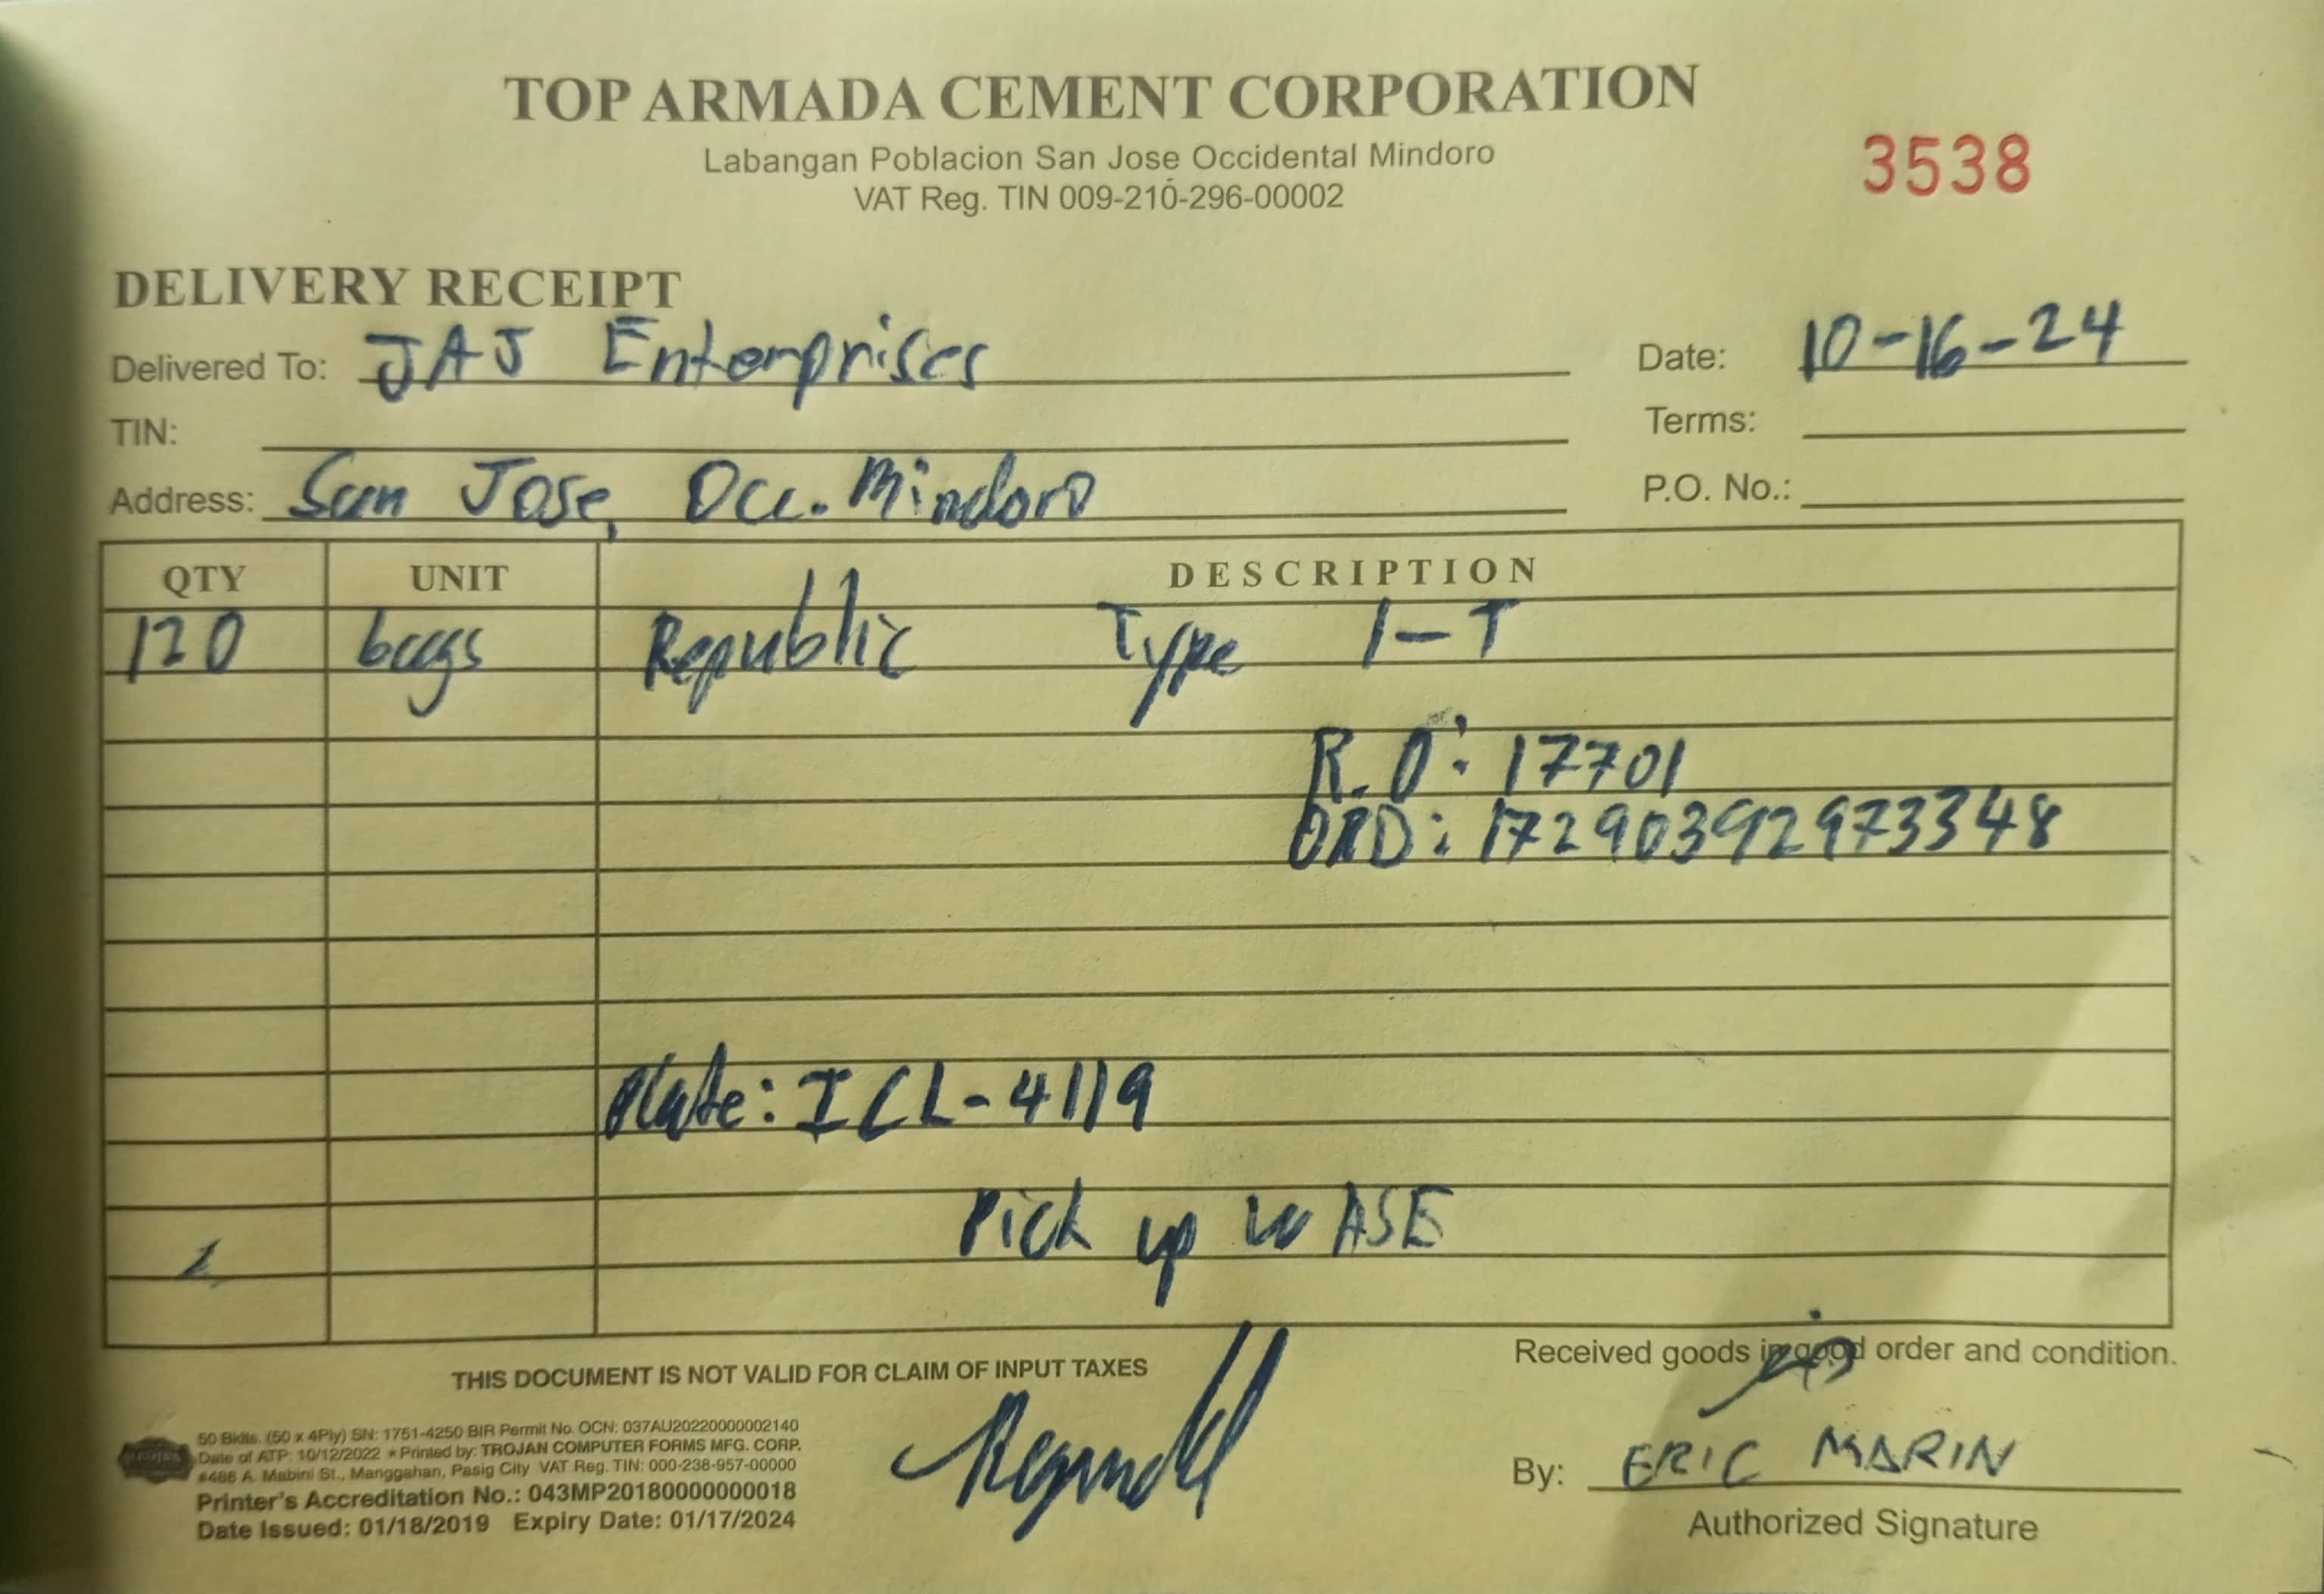 TOP ARMADA CEMENT CORPORATION
Labangan Poblacion San Jose Occidental Mindoro
VAT Reg. TIN 009-210-296-00002
3538
DELIVERY RECEIPT
Delivered To: JAJ Enterprises
Date: 10-16-24
TIN:
Terms:
Address: San Jose, Occ. Mindoro
P.O. No.:
QTY UNIT DESCRIPTION
120 bags Republic Type 1-T
R.O: 17701
ORD: 17290392973348
Plate: ICL-4119
Pick up W ASE
THIS DOCUMENT IS NOT VALID FOR CLAIM OF INPUT TAXES
Received goods in good order and condition.
50 Bklts. (50 x 4Ply) SN: 1751-4250 BIR Permit No. OCN: 037AU20220000002140
Date of ATP: 10/12/2022 * Printed by: TROJAN COMPUTER FORMS MFG. CORP.
#488 A. Mabini St., Manggahan, Pasig City VAT Reg. TIN: 000-238-957-00000
Printer's Accreditation No.: 043MP20180000000018
Date Issued: 01/18/2019 Expiry Date: 01/17/2024
By: ERIC MARIN
Authorized Signature